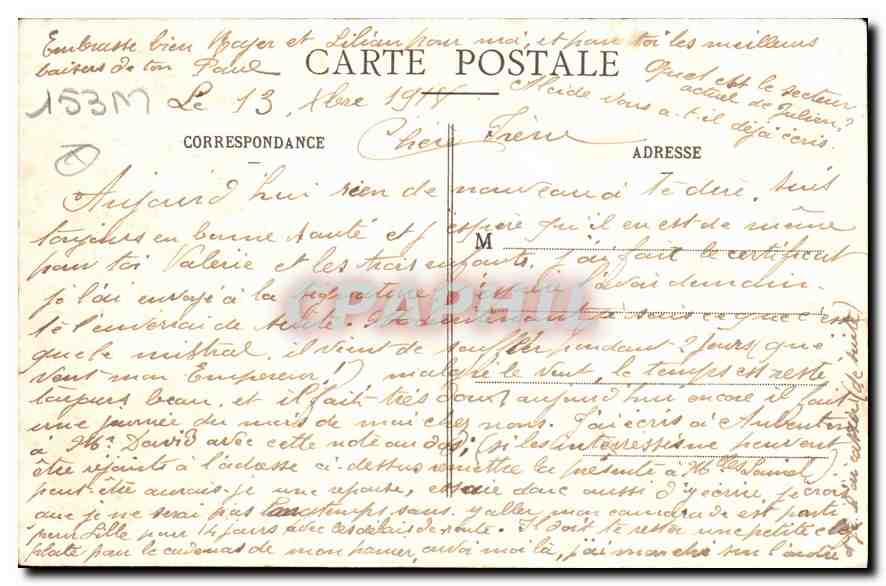 Embrasse bien Roger et Lilian pour moi, et pour toi les meilleurs
baisers de ton Paul
CARTE POSTALE
Quel est le secteur
actuel de Julien?
Alcide vous a-t-il déjà écris.
153M
Le 13 Xbre 1918.
CORRESPONDANCE
Chère Frère
ADRESSE
Aujourd'hui rien de nouveau à te dire. Suis
toujours en bonne santé et j'espère qu'il en est de même
M
pour toi Valérie et les trois enfants. J'ai fait le certificat
je l'ai envoyé à la signature j'espère l'avoir demain.
te l'enverrai de suite. Maintenant je sais ce que c'est
que le mistral, il vient de souffler pendant 2 jours (quel
vent mon Empereur!) malgré le vent, le temps est resté
toujours beau, et il fait très doux, aujourd'hui encore il fait
une journée du mois de mai chez nous. J'ai écris à Aubenton
à Mr David avec cette note au dos; (si les intéressés ne peuvent
être rejoints à l'adresse ci-dessus remettre la présente à
peut-être aurais-je une réponse, essaie donc aussi d'y écrire, je crois
que je ne serai pas longtemps sans y aller, mon camarade est parti
pour Lille pour 14 jours avec ces délais de route. Il doit te rester une petite
plate pour le cadenas de mon panier, envoi moi là, j'ai marché sur l'autre
CPAPHIL